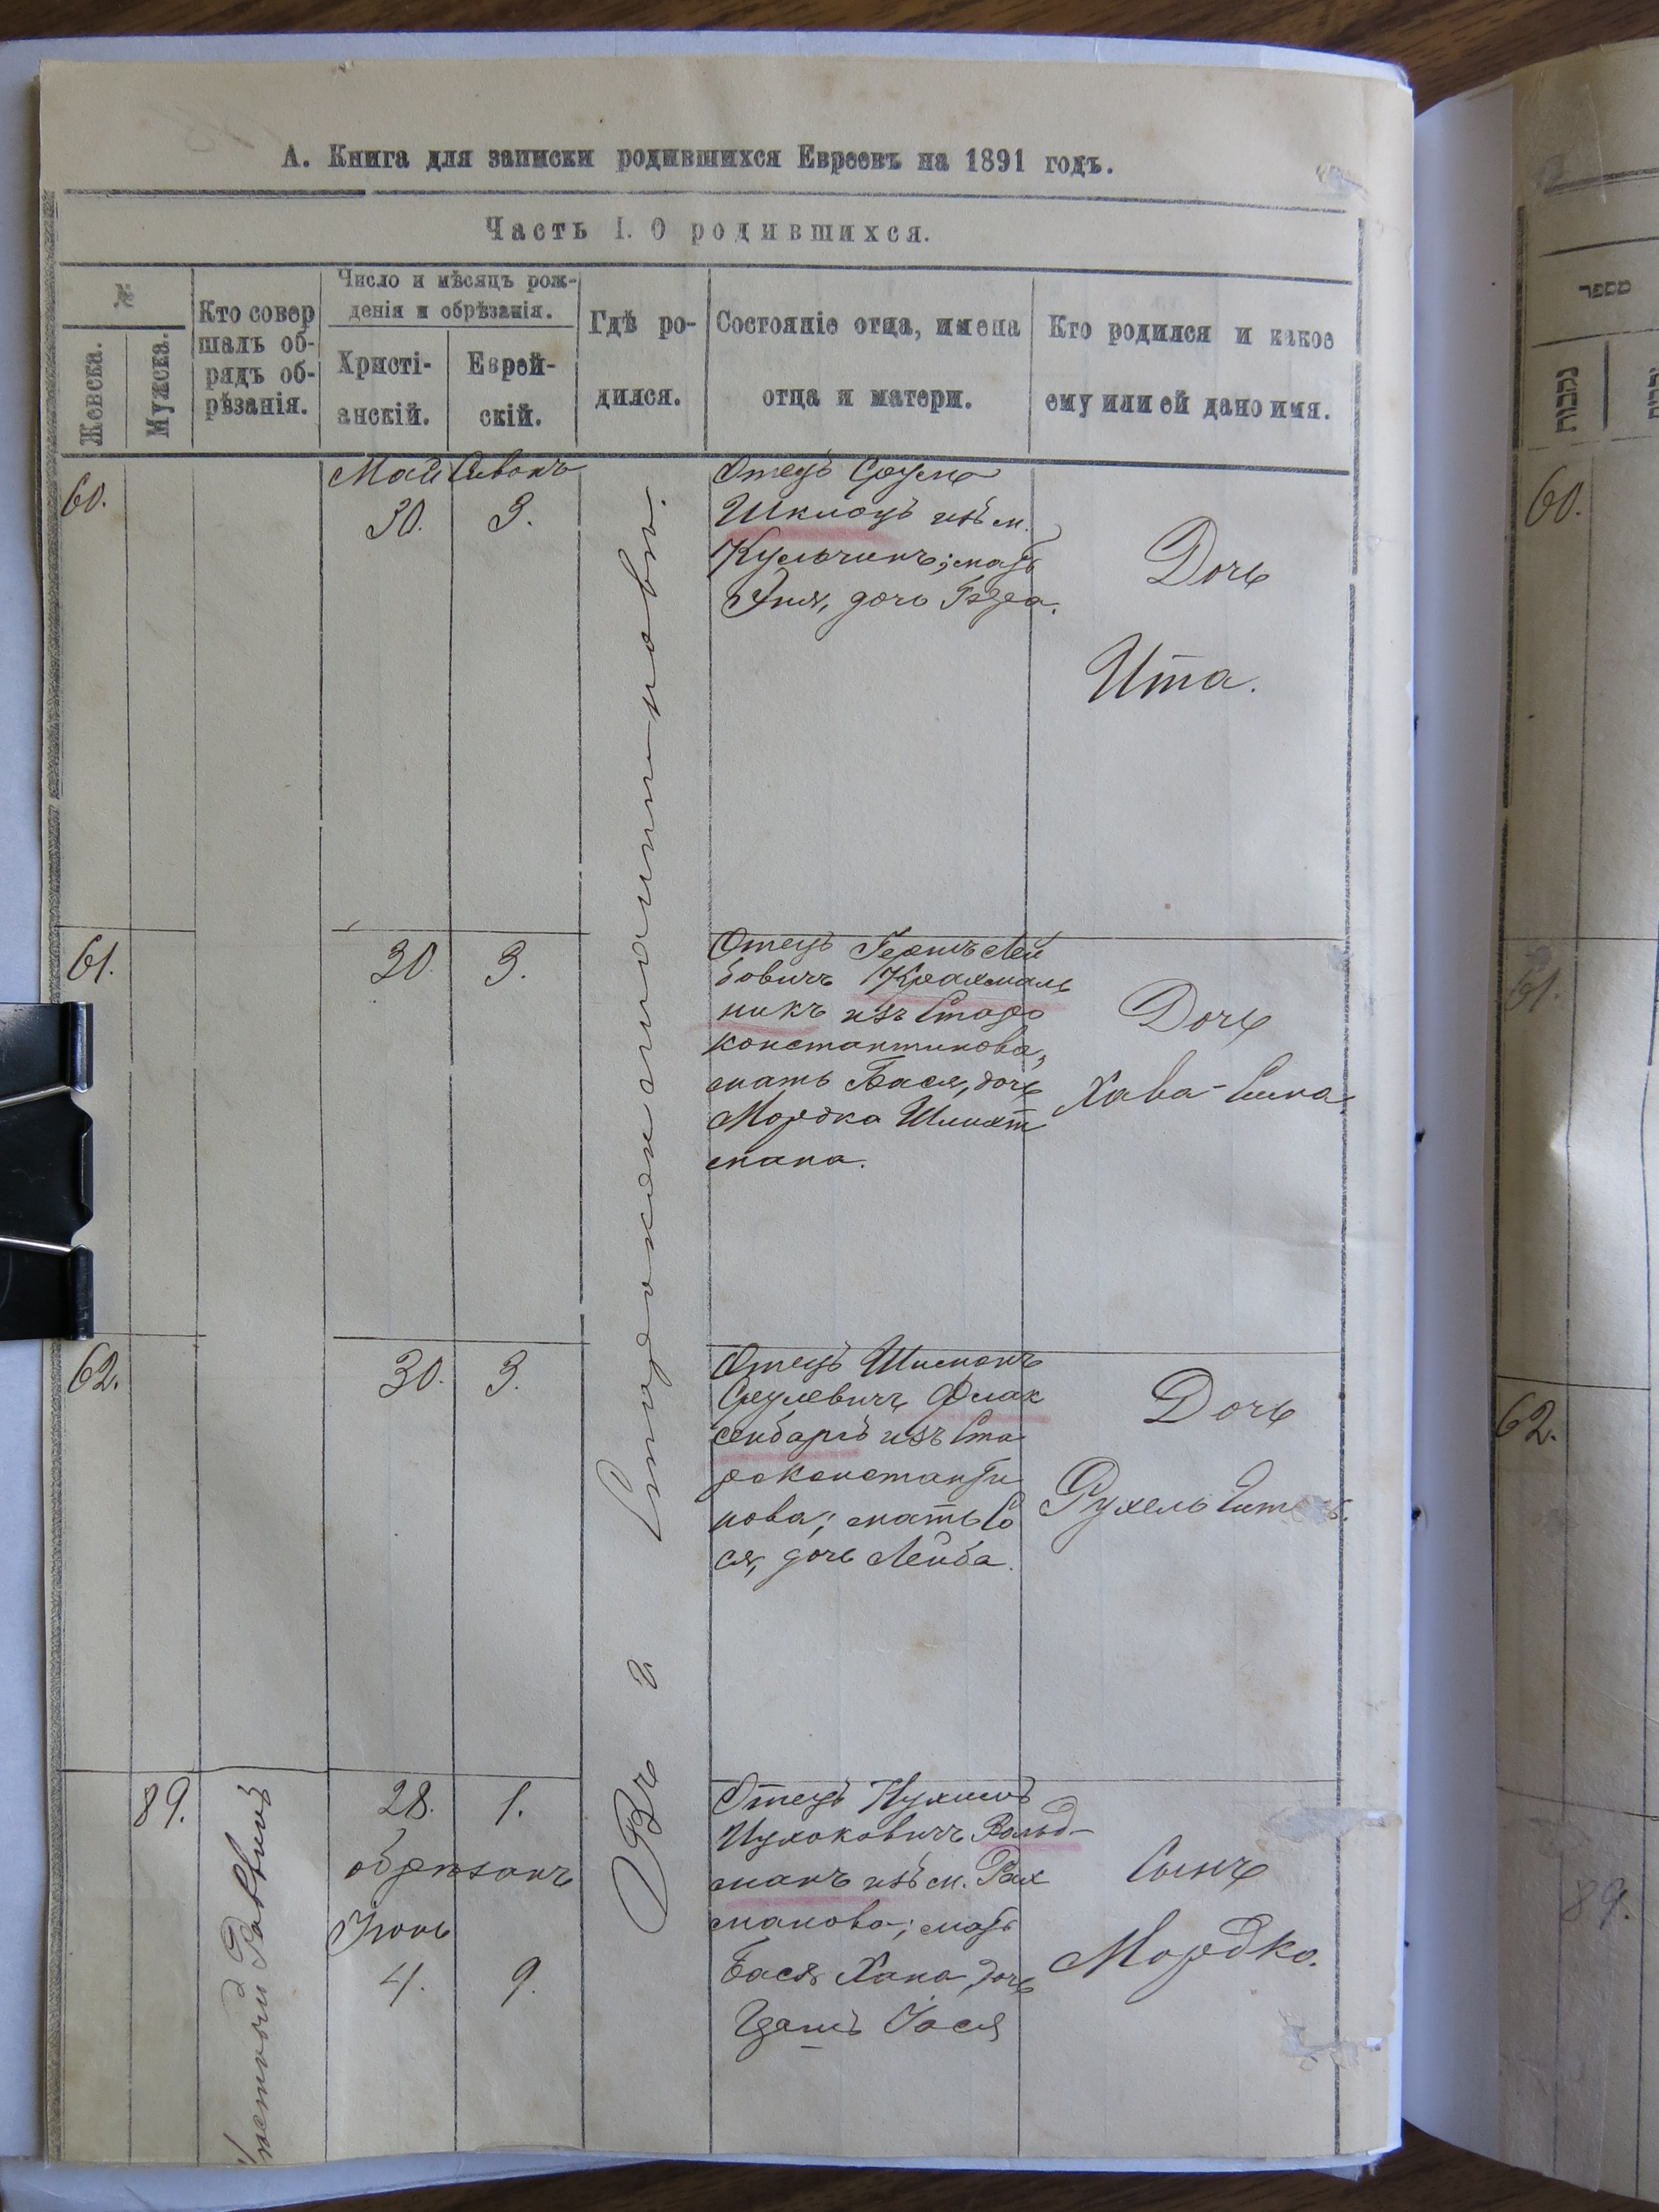 А. Книга для записки родившихся Евреевъ на 1891 годъ.
Часть I. О родившихся.
№
Женска.
Мужска.
Кто совер
шалъ об-
рядъ об-
рѣзанія.
Число и мѣсяцъ рож-
денія и обрѣзанія.
Христі-
анскій.
Еврей-
скій.
Гдѣ ро-
дился.
Состояніе отца, имена
отца и матери.
Кто родился и какое
ему или ей дано имя.
Въ г Староконстантиновѣ.
60.
Май Сивонъ
30. 3.
Отецъ Сруль
Шклоцъ изъ м.
Кульчинъ; мать
дочь
Дочь
Ита.
61.
30 3.
Отецъ Гершъ Лей
бовичъ Крахмаль
никъ изъ Старо
константинова,
мать Бася, дочь
Мордка
мана.
Дочь
Хава-
62.
30. 3.
Отецъ Шимонъ
Срулевичъ Флак
сенбаргъ изъ Ста
роконстанти
нова; мать Со
ся, дочь Лейба.
Дочь
Рухель
89.
Раввинъ
28. 1.
обрѣзанъ
Іюнь
4. 9.
Отецъ Нухимъ
Ицхоковичъ Вольд-
манъ изъ м. Рах
манова; мать
Бася Хана, дочь
Сынъ
Мордко.
מספר
נקבות
60.
61.
62.
89.